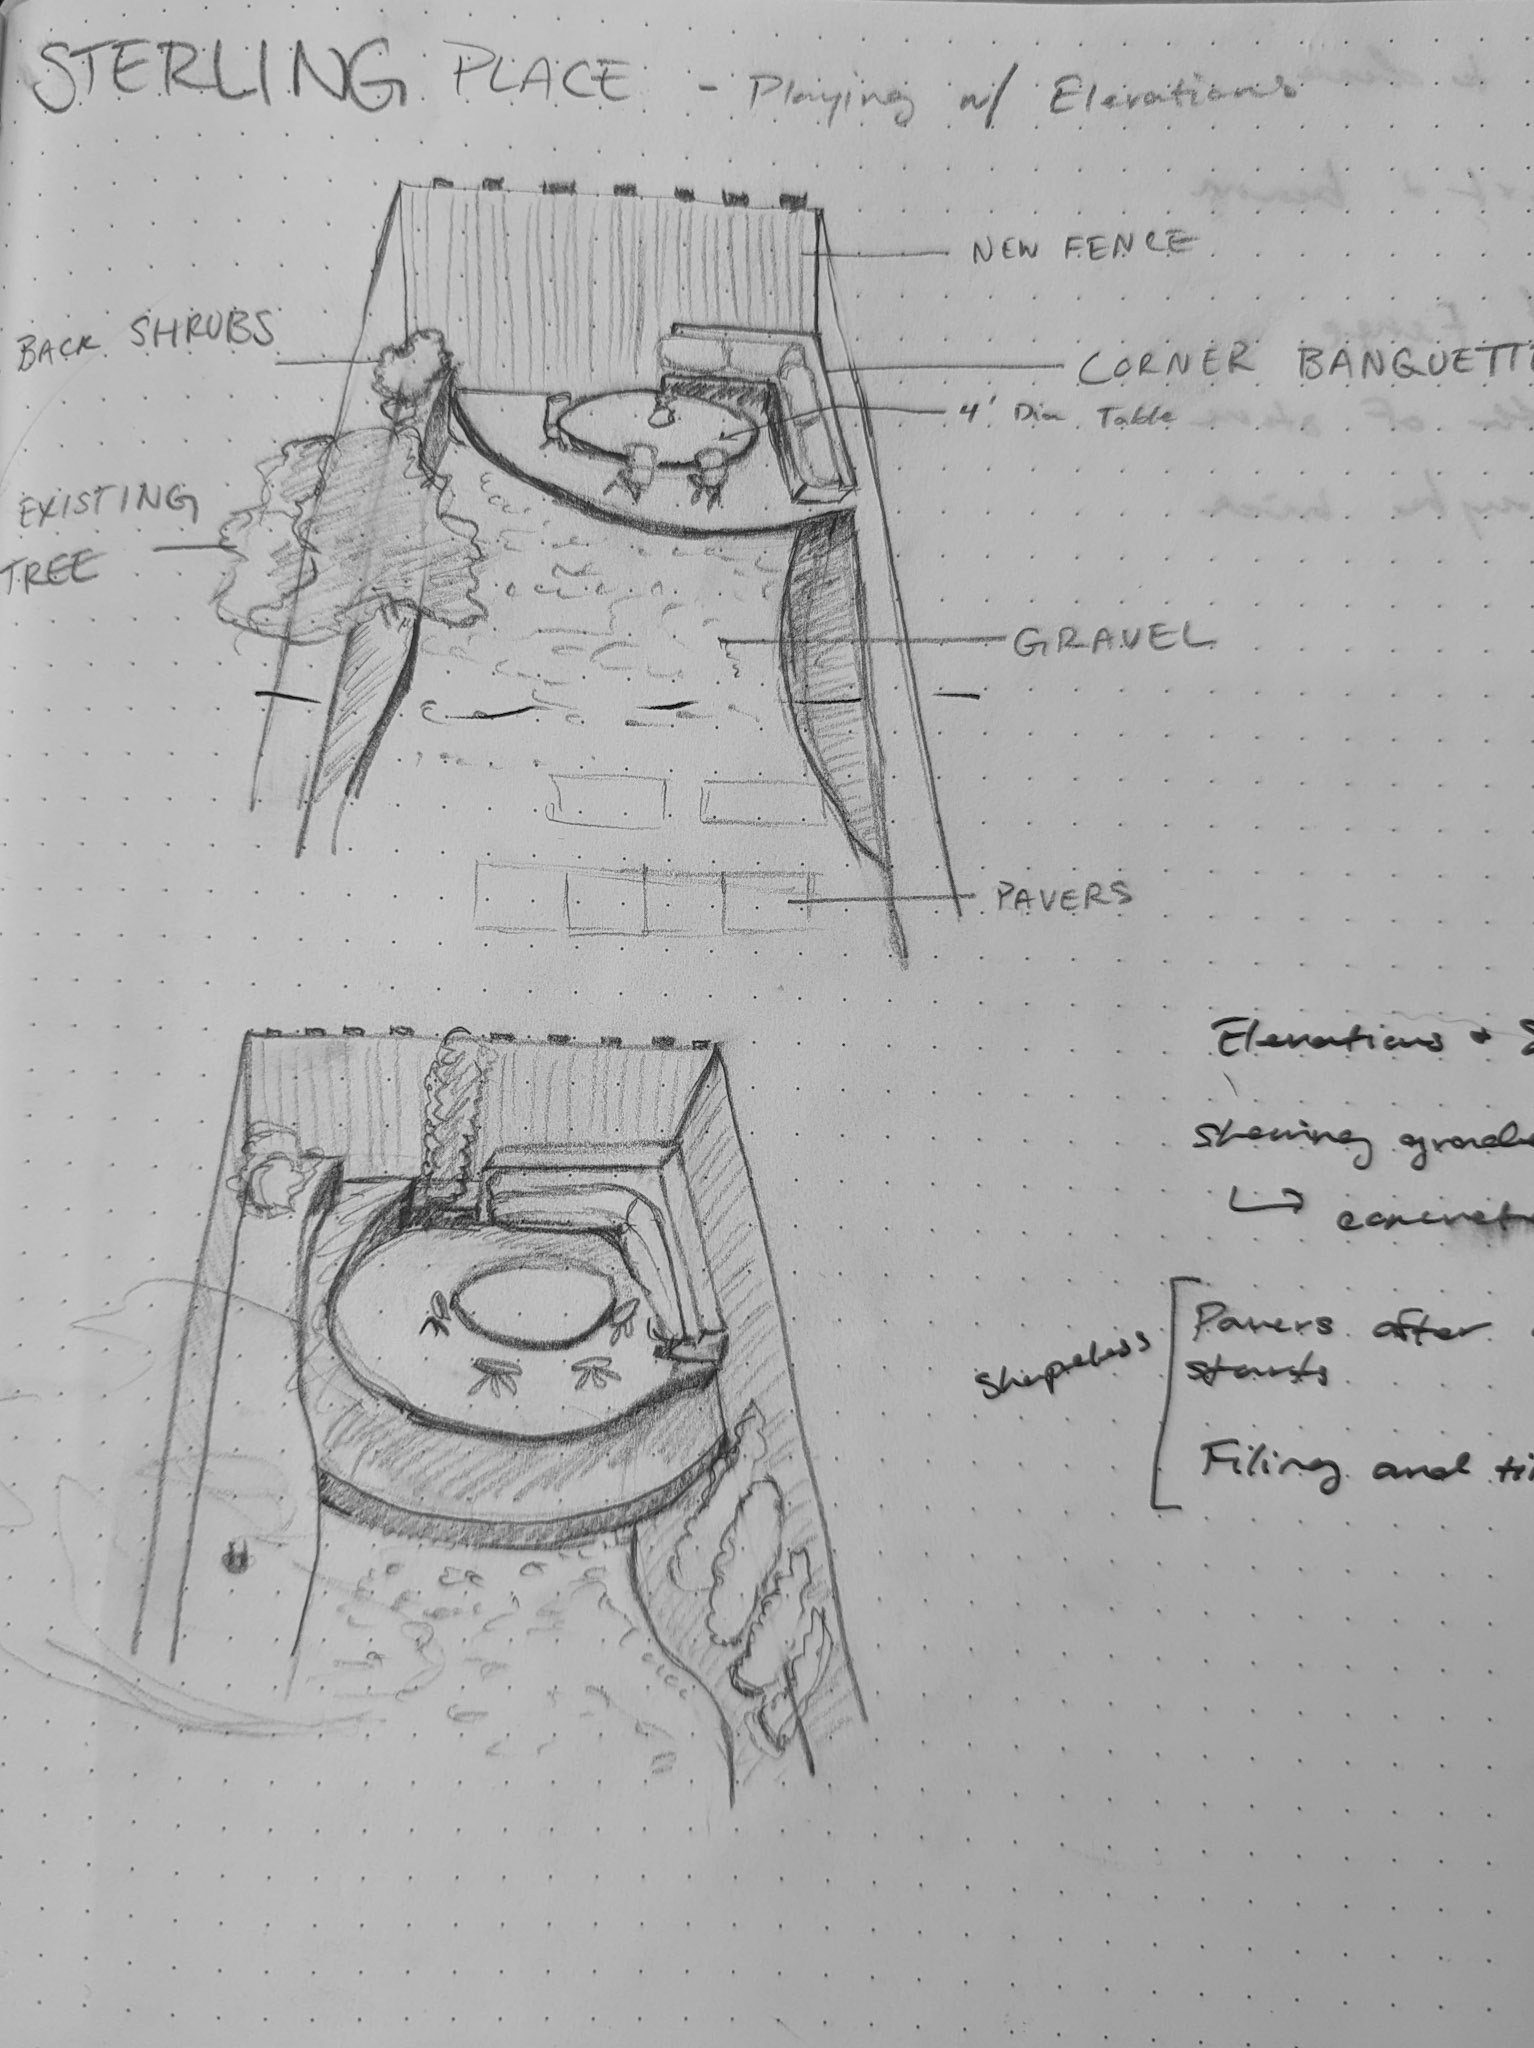 STERLING PLACE - Playing w/ Elevations
NEW FENCE
BACK SHRUBS
CORNER BANQUETTE
4' Dia Table
EXISTING
TREE
GRAVEL
PAVERS
Elevations +
Showing
↳ concrete
shapeless
Pavers after
starts
Filing and